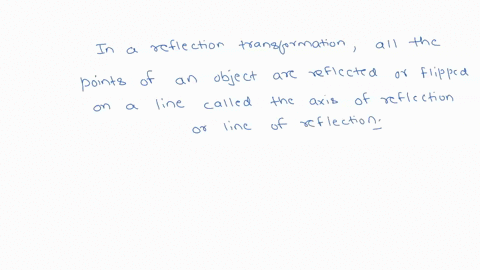 In a reflection transformation, all the
points of an object are reflected or flipped
on a line called the axis of reflection
or line of reflection.